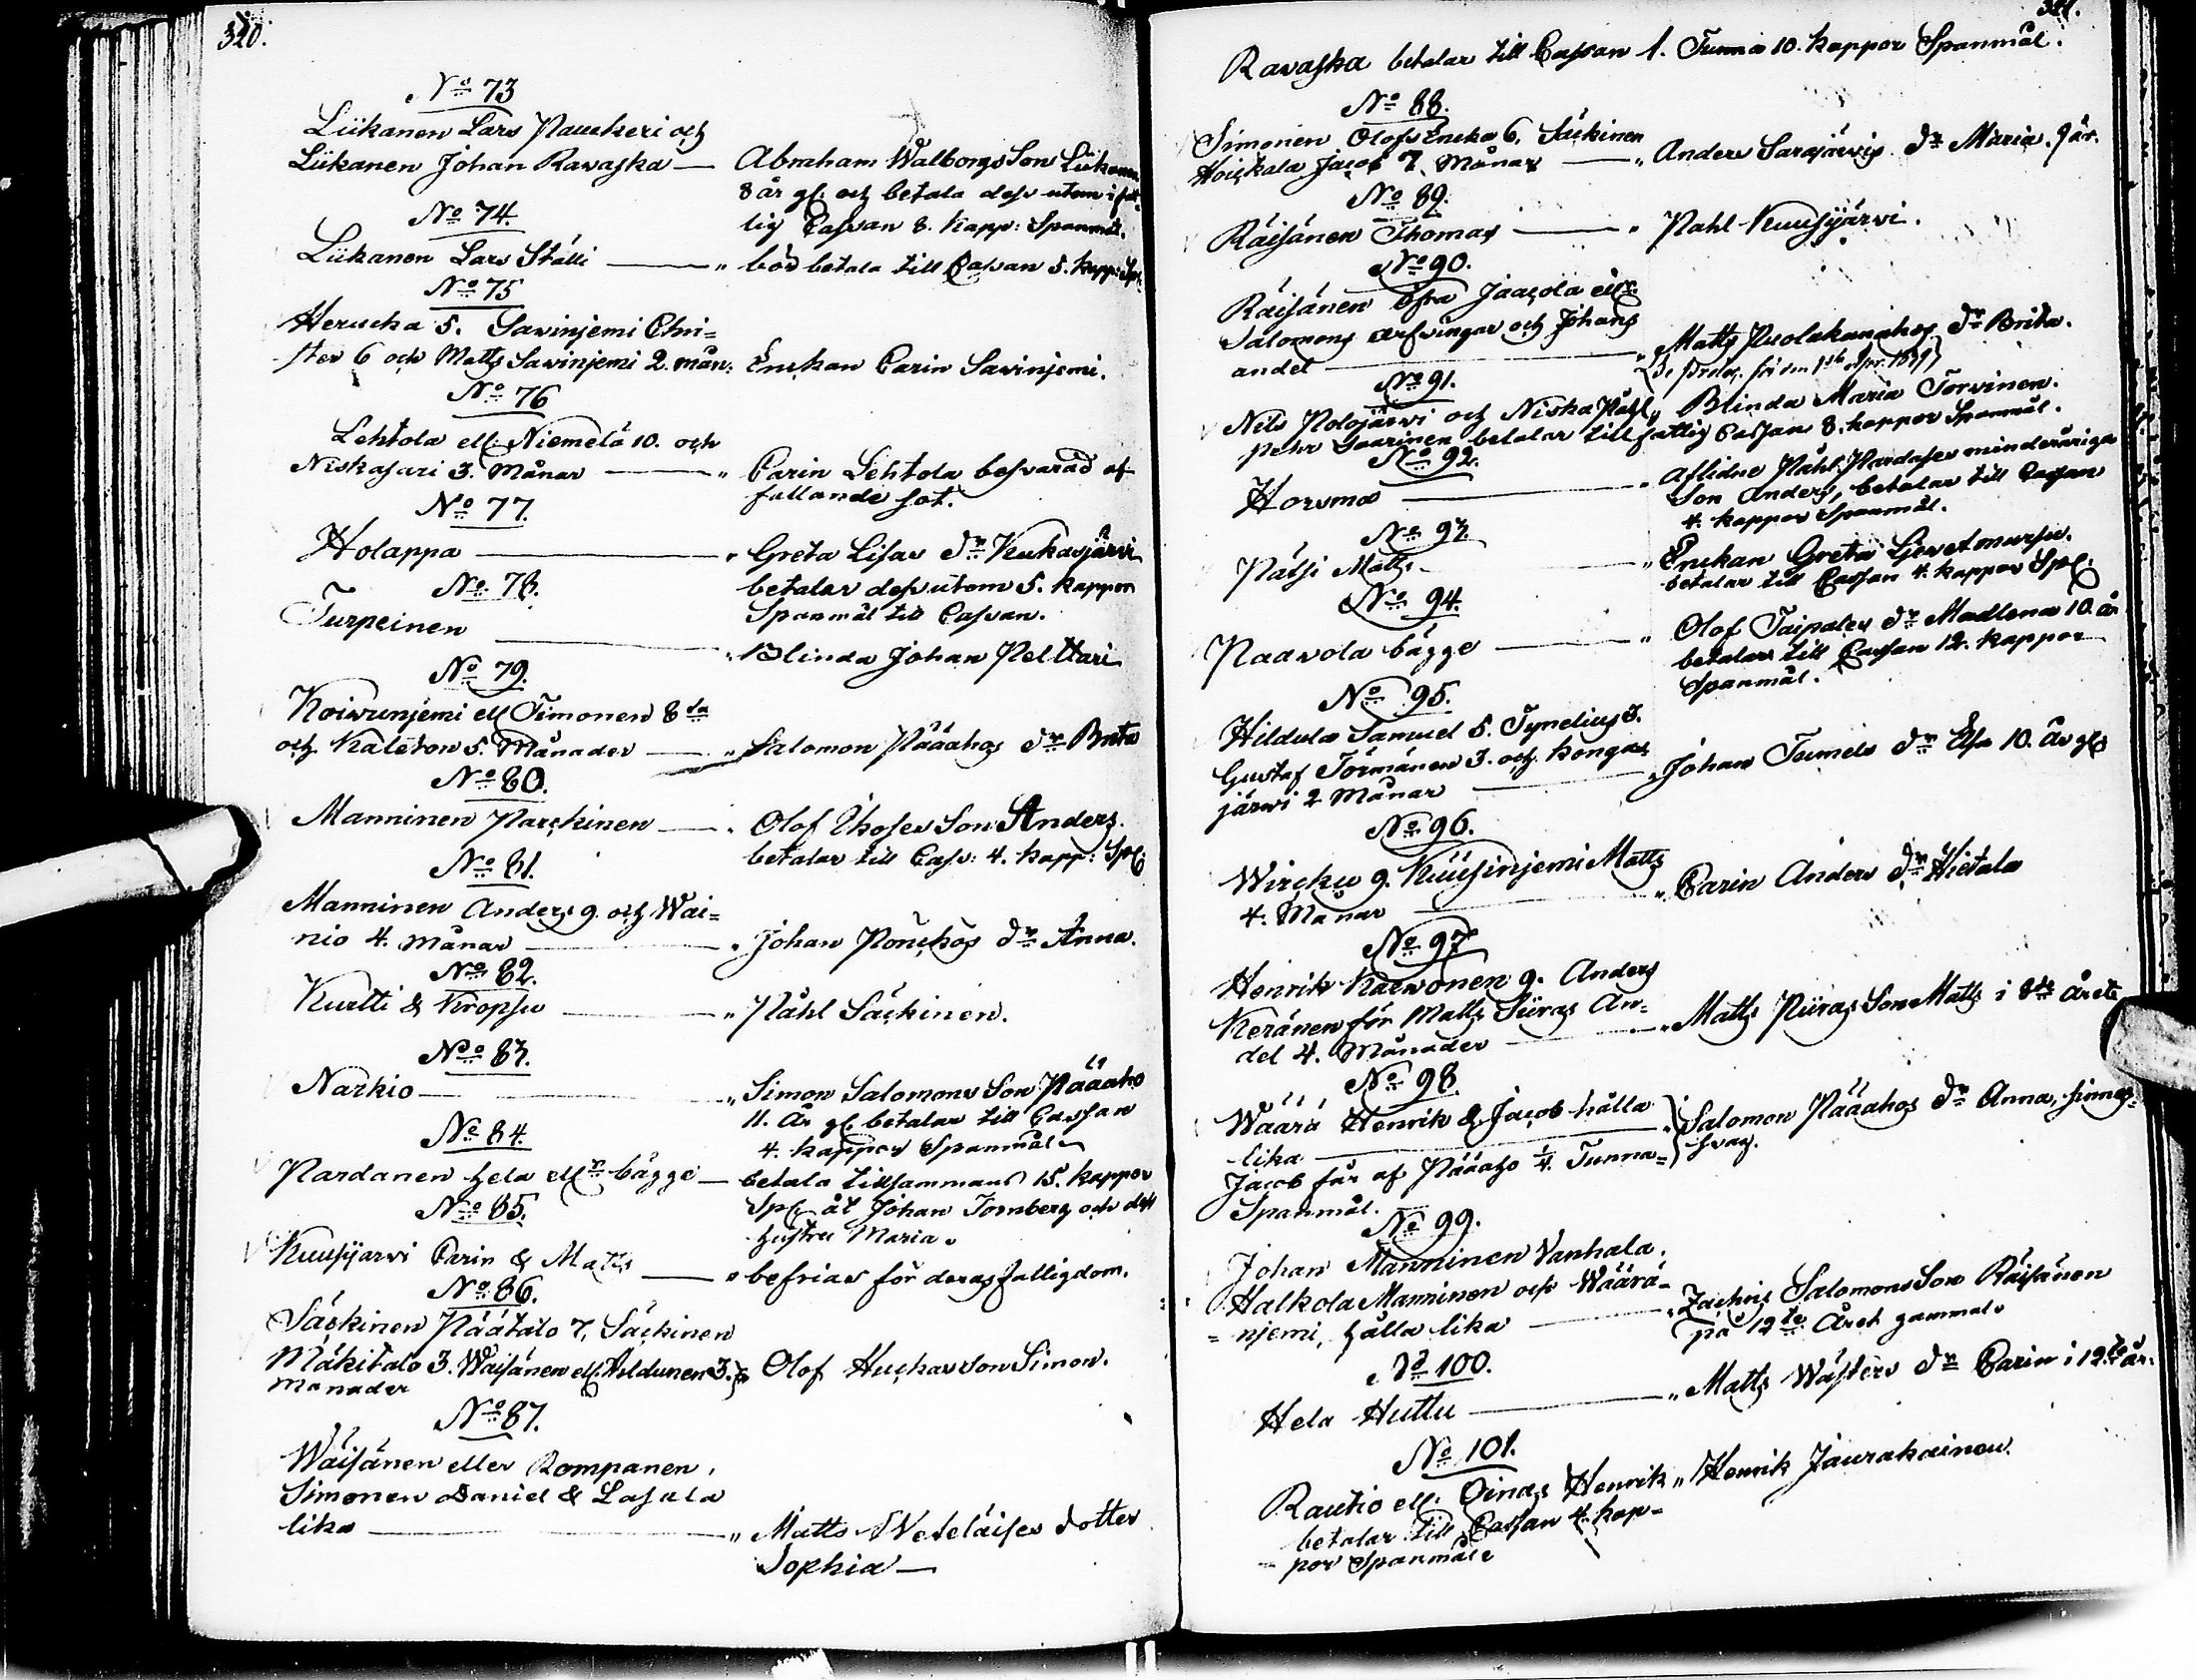 320.
No 73
Liikanen Lars Pauckeri och
Liikanen Johan Ravaska — Abraham Walborgs Son Liikanen
8 år gl. och betala dess utom i fat-
tig Cassan 8. Kapp: Spanmål.
No 74.
Liikanen Lars Ställi — " bör betala till Cassan 5. kapp: Sp:
No 75
Herucka 5. Savinjemi Chri=
ster 6 och Matts Savinjemi 2. mån: Enckan Carin Savinjemi.
No 76
Lehtola ell. Niemelä 10. och
Niskasari 3. Månar — " Carin Lehtola besvarad af
fallande sot.
No 77.
Holappa — " Greta Lisas dr Kukasjärvi
betalar dess utom 5. kappor
Spanmål till Cassan.
No 78.
Turpeinen — " Blinda Johan Pelttari
No 79.
Koivunjemi ell Timonen 8 da
och Kaleton 5. Månader — " Salomon Pääahos dr Brita
No 80.
Manninen Parckinen — " Olof Ihoses Son Anders.
betalar till Cass: 4. kapp: Spl:
No 81.
Manninen Anders 9. och Wai=
nio 4. månar — " Johan Pönckös dr Anna.
No 82.
Kurtti & Kropsu — " Påhl Säckinen.
No 83.
Narkio — " Simon Salomons Son Pääaho
11. År gl. betalar till Cassan
4. kappor Spanmål
No 84.
Pardanen hela ellr bägge — betala tillsammans 15. kappor
Spl åt Johan Tornberg och dess
hustru Maria.
No 85.
Kuusijärvi Carin & Matts — " befrias för deras fattigdom.
No 86.
Säckinen Päätalo 7, Säckinen
Mäkitalo 3. Waisänen ell. Hildunen 3. " Olof Huckas son Simon.
Månader
No 87.
Wäisänen eller Rompanen,
Simonen Daniel & Lasala
lika — " Matts Weteläises dotter
Sophia —
321.
Ravaska betalar till Cassan 1. Tunna 10. kappor Spanmål.
No 88.
Simonen Olofs Encka 6, Säckinen
Hoickala Jacob 7. Månar — " Anders Sarajärvis dr Maria. 9 år.
No 89.
Räisänen Thomas — " Pahl Kuusijärvi.
No 90.
Räisänen öfra Jaacola ell.
Salomons arfvingar och Johans
andel — " Matts Puolakanahos dr Brita.
No 91.
Nils Polojärvi och Niska Påhl " Blinda Maria Torvinen.
Pehr Saarinen betalar till fattig Cassan 8. kappor Spanmål.
No 92.
Horsma — " Aflidne Påhl Pardases minderåriga
Son Anders, betalar till Cassan
4. kappor Spanmål.
No 93.
Pätsi Matts — " Enckan Greta
betalar till Cassan 4. kappor Spl:
No 94.
Paavola bägge — " Olof Taipales dr Madlena 10. år
betalar till Cassan 12. kappor
Spanmål.
No 95.
Hildula Samuel 5. Tynelius 3.
Gustaf Törmänen 3. och Kongas
järwi 2 Månar — " Johan Tumels dr Elsa 10. År gl
No 96.
Wircku 9. Kuusinjemi Matts
4. Månar — " Carin Anders dr Hietala
No 97
Henrik Karvonen 9. Anders
Keränen för Matts Siiras An=
del 4. Månader — " Matts Piiras Son Matts i 8de Året
No 98.
Wäärä Henrik & Jacob hålla
lika — " Salomon Pääahos dr Anna, sinnes-
svag.
Jacob får af Pääaho 1/4. Tunna=
Spanmål.
No 99.
Johan Manninen Vanhala.
Halkola Manninen och Wäärä-
= njemi, hålla lika — " Zachris Salomons Son Räisänen
på 12te Året gammal
No 100.
Hela Huttu — " Matts Wästers dr Carin i 12te år.
No 101.
Rautio ell. Oinas Henrik " Henrik Jaurakainen.
betalar till Cassan 4. kap-
por Spanmål